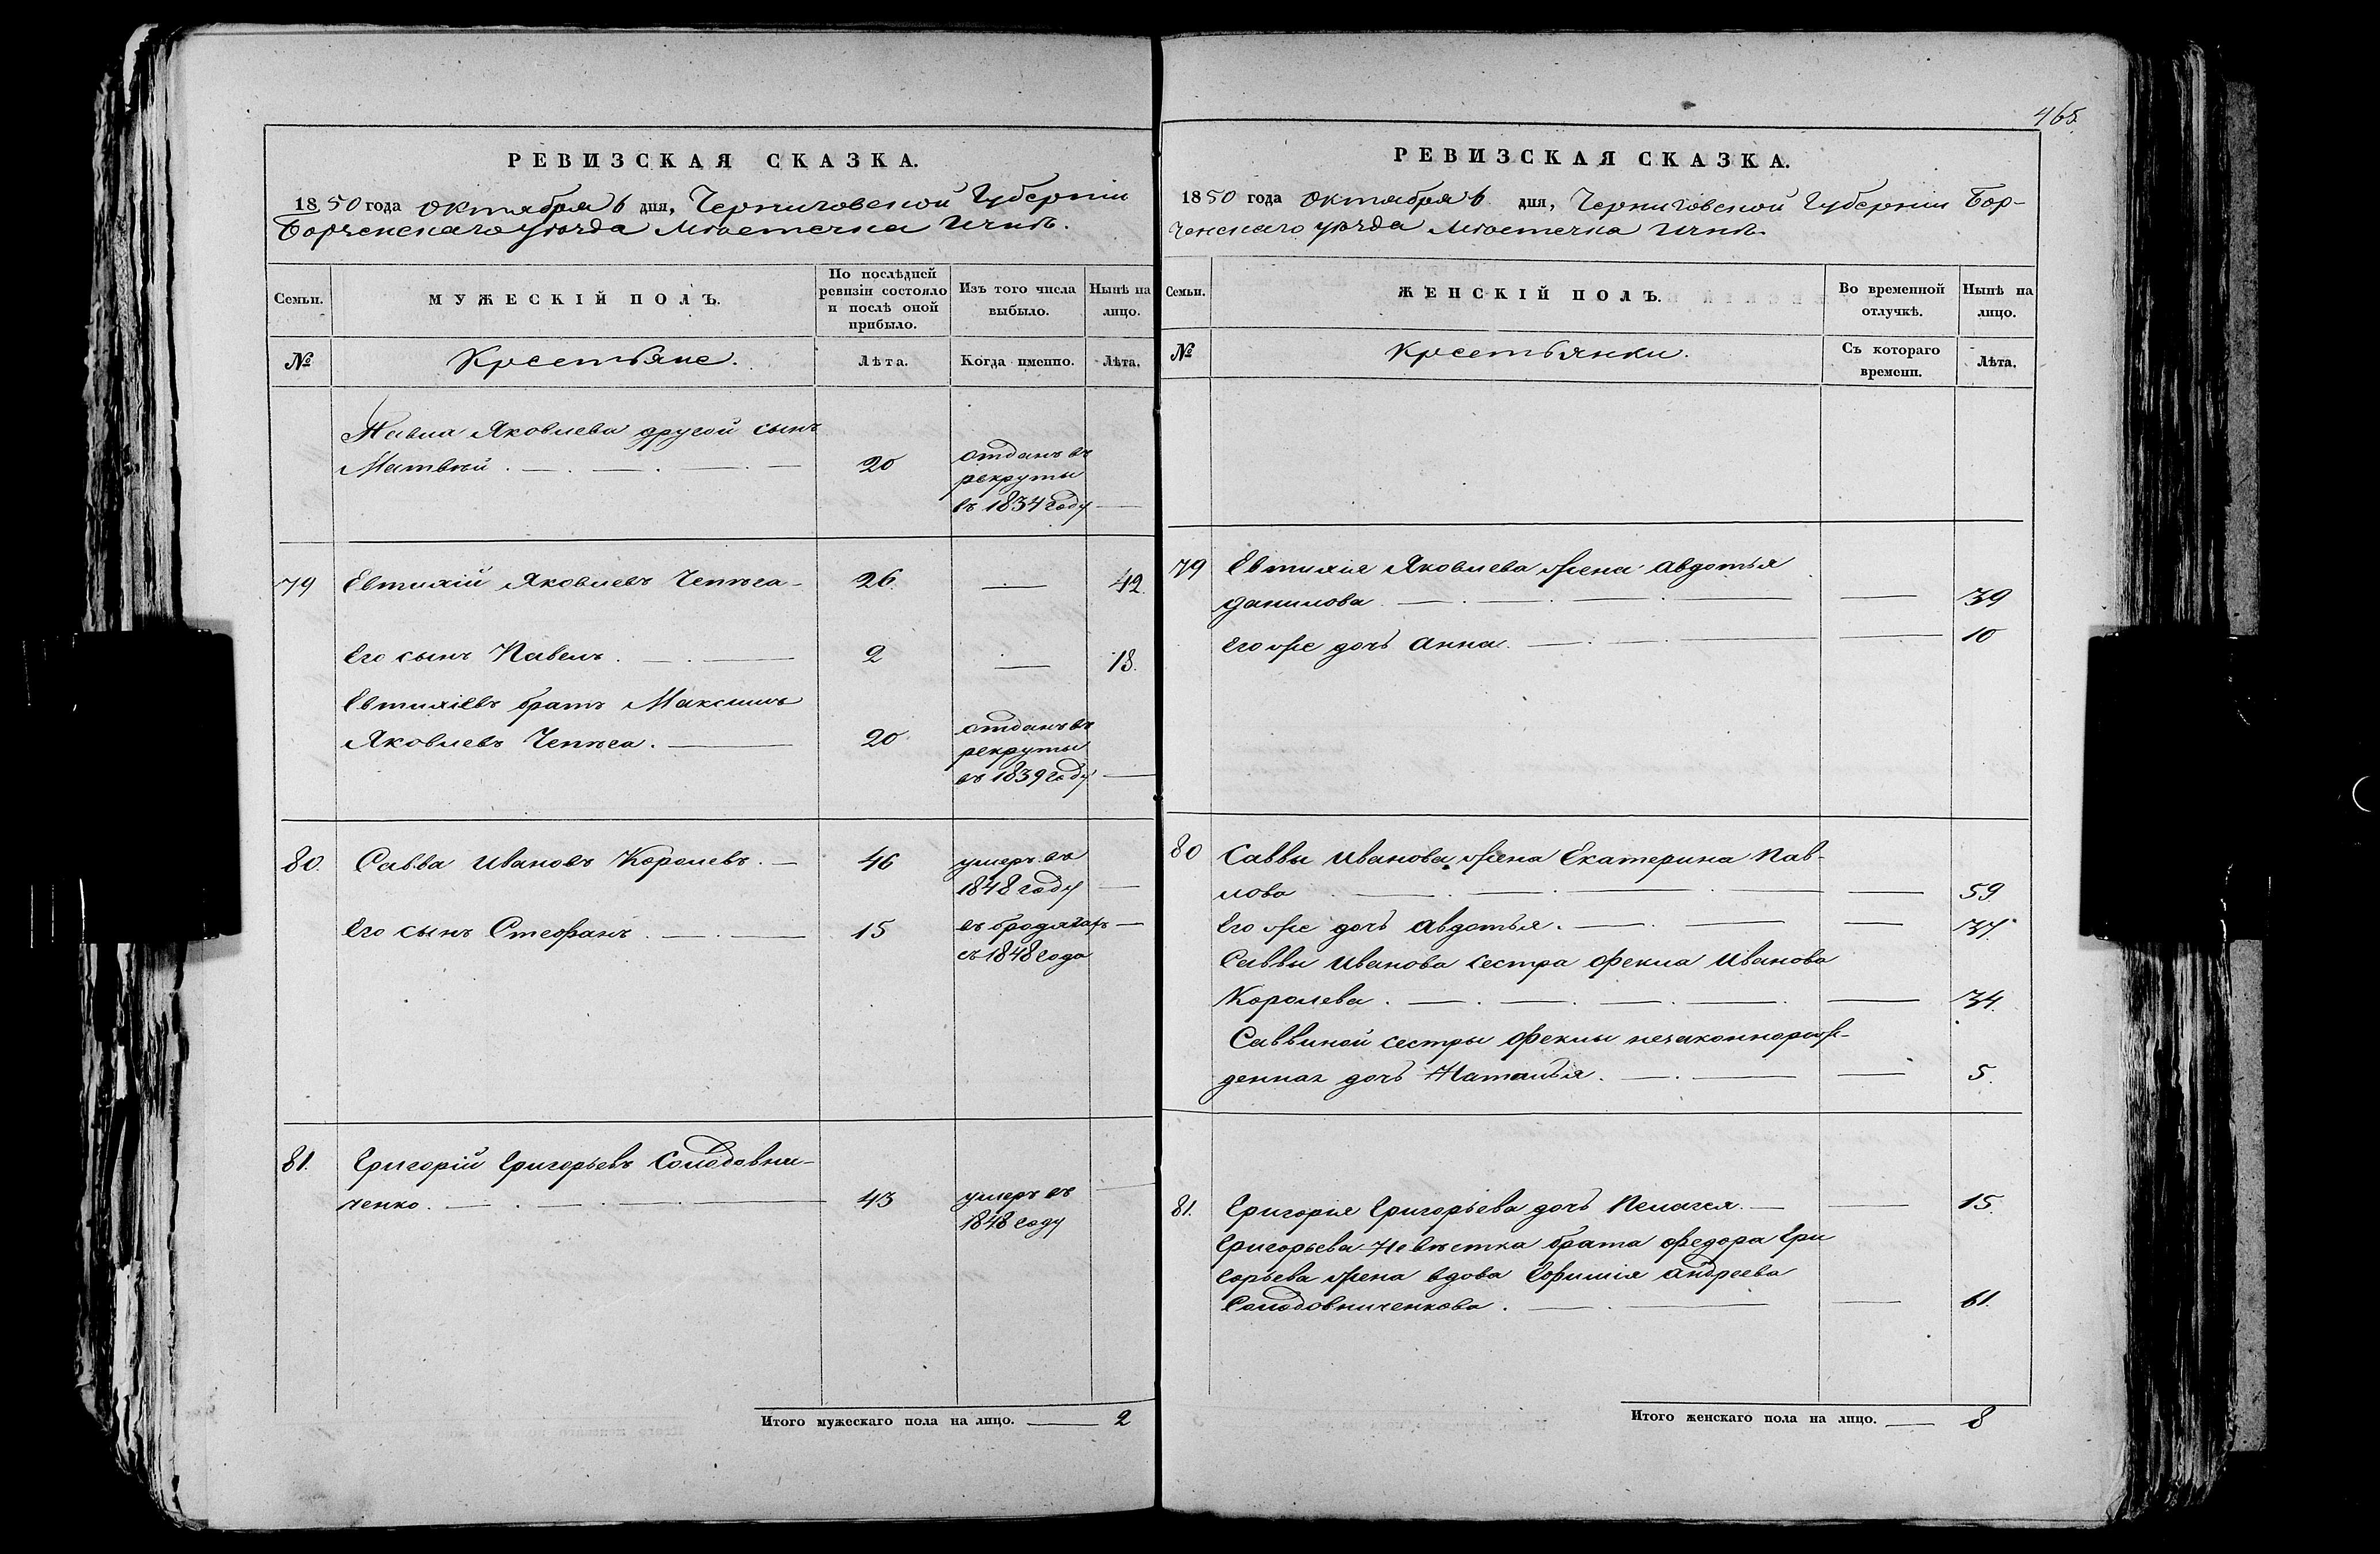 465.
РЕВИЗСКАЯ СКАЗКА.
1850 года Октября 6 дня, Черниговской Губерніи
Борзенскаго уѣзда Мѣстечка Ични.
Семьи.
МУЖЕСКІЙ ПОЛЪ.
По послѣдней ревизіи состояло и послѣ оной прибыло.
Изъ того числа выбыло.
Нынѣ на лицо.
№
Крестьяне.
Лѣта.
Когда именно.
Лѣта.
Павла Яковлева другой сынъ
Матвѣй . — . — . — . — 20 отданъ въ
рекруты
въ 1834 году —
79 Евтихій Яковлевъ Чепѣга - 26. — 42.
Его сынъ Павелъ . — . — 2 — 18.
Евтихіевъ братъ Максимъ
Яковлевъ Чепѣга . — 20 отданъ въ
рекруты
въ 1839 году —
80. Савва Ивановъ Королевъ . — 46 умеръ въ
1848 году —
Его сынъ Стефанъ . — . — 15 въ бродягахъ —
съ 1848 года
81. Григорій Григорьевъ Солодовни-
ченко . — . — . — . — 43 умеръ въ —
1848 году
Итого мужескаго пола на лицо. — 2
РЕВИЗСКАЯ СКАЗКА.
1850 года Октября 6 дня, Черниговской Губерніи Бор-
зенскаго уѣзда Мѣстечка Ични.
Семьи.
ЖЕНСКІЙ ПОЛЪ.
Во временной отлучкѣ.
Нынѣ на лицо.
№
Крестьянки.
Съ котораго времени.
Лѣта.
79 Евтихія Яковлева жена Авдотья
Данилова . — . — . — . — — 39
Его же дочь Анна . — . — — 10
80 Саввы Иванова жена Екатерина Пав-
лова . — . — . — — 59
Его же дочь Авдотья . — . — — 37.
Саввы Иванова сестра Фекла Иванова
Королева . — . — . — . — . — 34.
Саввиной сестры Феклы незаконнорож-
денная дочь Наталья . — . — — 5.
81. Григорія Григорьева дочь Пелагея . — — 15.
Григорьева невѣстка брата Федора Гри
горьева жена вдова Ефимія Андреева
Солодовниченкова . — . — — 61.
Итого женскаго пола на лицо. — 8